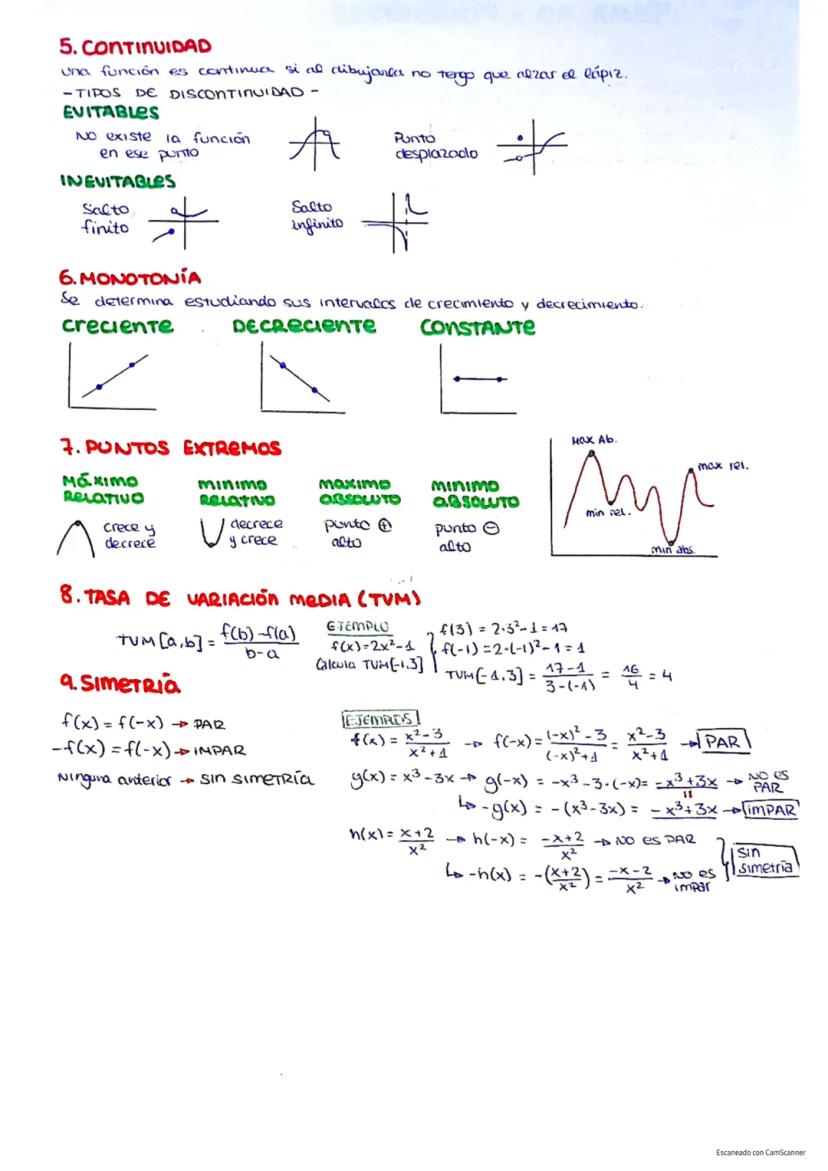 5. CONTINUIDAD
Una función es continua si al dibujarla no tengo que alzar el lápiz.
- TIPOS DE DISCONTINUIDAD -
EVITABLES
NO existe la función
en ese punto
Punto
desplazado
INEVITABLES
Salto
finito
Salto
infinito
6. MONOTONÍA
Se determina estudiando sus intervalos de crecimiento y decrecimiento.
CRECIENTE DECRECIENTE CONSTANTE
7. PUNTOS EXTREMOS
MÁXIMO
RELATIVO
crece y
decrece
MINIMO
RELATIVO
decrece
y crece
MAXIMO
ABSOLUTO
punto ⊕
alto
MINIMO
ABSOLUTO
punto ⊖
alto
Max Ab.
max rel.
min rel.
min abs.
8. TASA DE VARIACIÓN MEDIA (TVM)
TVM [a,b] = f(b) - f(a) / b - a
EJEMPLO
f(x) = 2x² - 1
Calcula TVM[-1,3]
f(3) = 2·3² - 1 = 17
f(-1) = 2·(-1)² - 1 = 1
TVM[-1,3] = 17-1 / 3-(-1) = 16/4 = 4
9. SIMETRÍA
f(x) = f(-x) → PAR
-f(x) = f(-x) → IMPAR
Ninguna anterior → SIN SIMETRÍA
EJEMPLOS
f(x) = x²-3 / x²+1 → f(-x) = (-x)²-3 / (-x)²+1 = x²-3 / x²+1 → PAR
g(x) = x³-3x → g(-x) = -x³-3·(-x) = -x³+3x → NO ES PAR
↳ -g(x) = -(x³-3x) = -x³+3x → IMPAR
h(x) = x+2 / x² → h(-x) = -x+2 / x² → NO ES PAR
↳ -h(x) = -(x+2 / x²) = -x-2 / x² → NO ES impar
sin
simetría
Escaneado con CamScanner